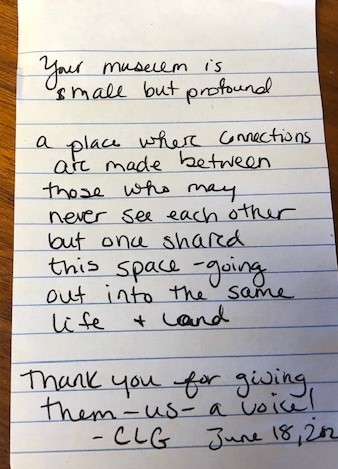 Your museum is
small but profound
a place where connections
are made between
those who may
never see each other
but once shared
this space - going
out into the same
life + land
Thank you for giving
them - us - a voice!
- CLG June 18,